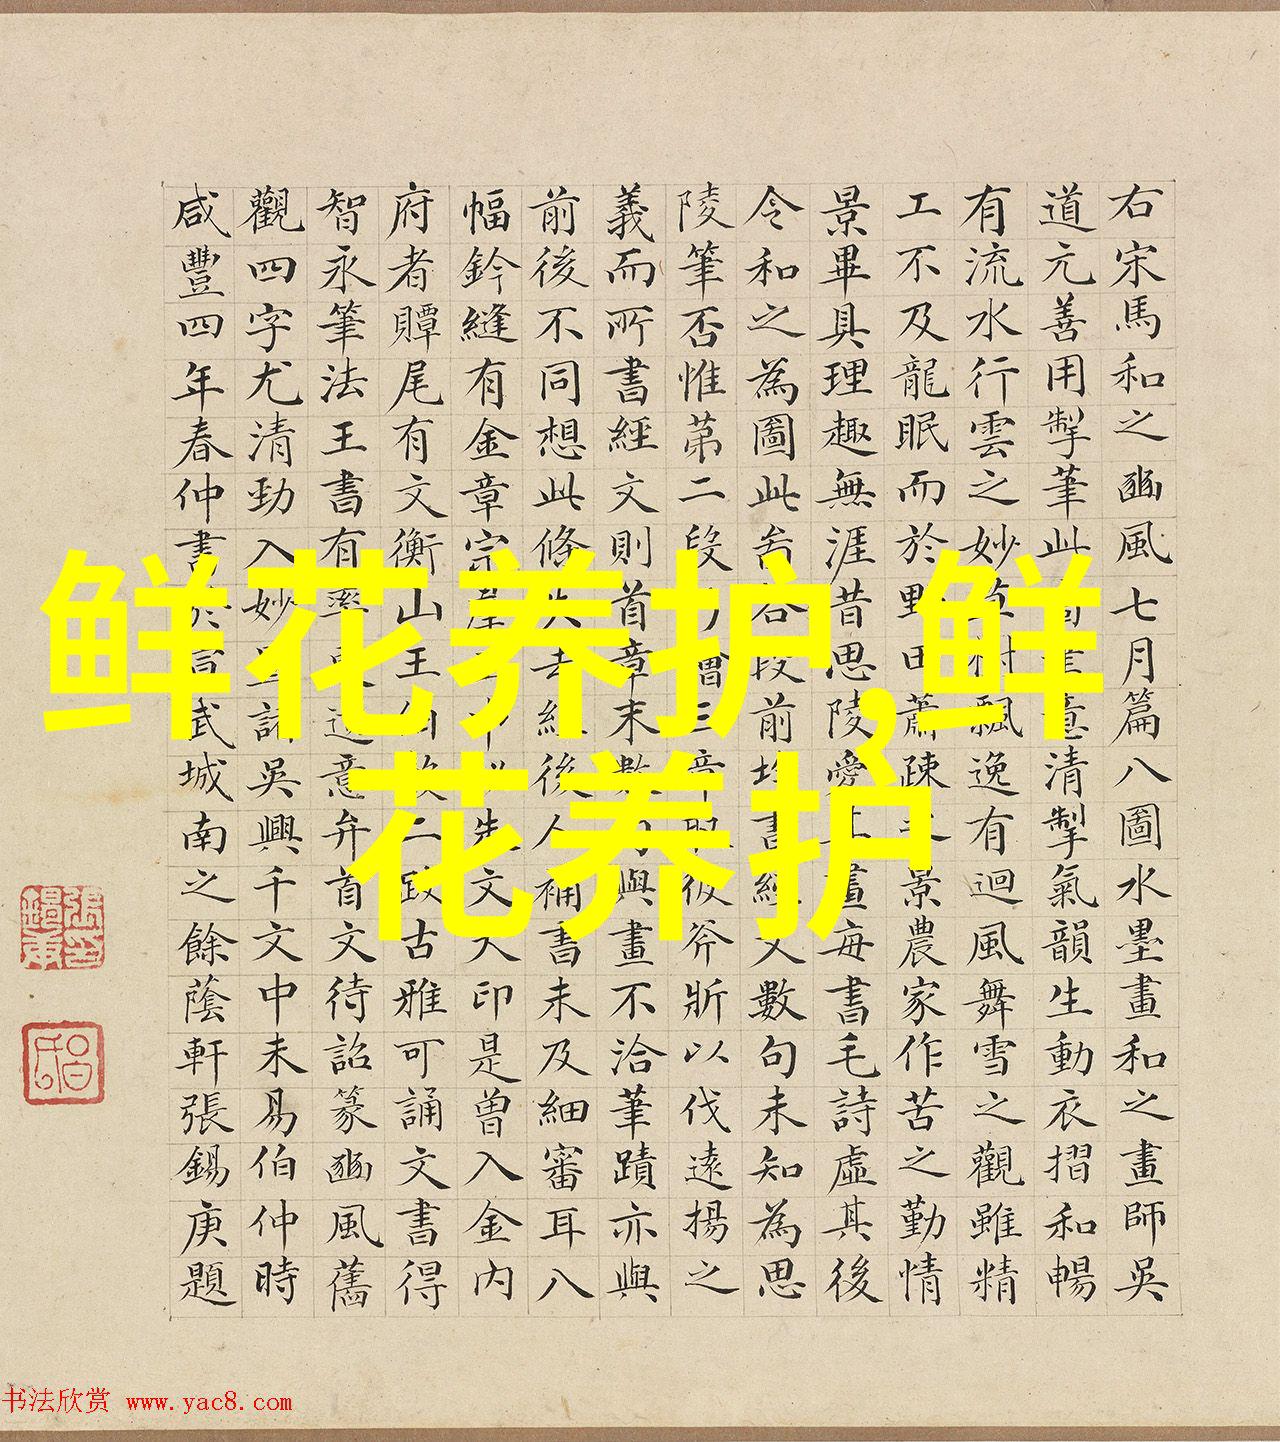 右宋馬和之豳風七月篇八圖水墨畫和之畫師吳
道元善用掣筆此意清掣氣韻生動衣摺和暢
有流水行雲之妙草樹飄逸有迴風舞雪之觀雖精
工不及龍眠而於野田蕭疎之景農家作苦之勤情
景畢具理趣無涯昔思陵愛畫每書毛詩虛其後
令和之為圖此卷各段前均書經文數句未知為思
陵筆否惟第二段會三章取彼斧斨以伐遠揚之
義而所書經文則首章末數句與畫不洽筆蹟亦與
前後不同想此條失去經後人補書未及細審耳八
幅鈐縫有金章宗先文大印是曾入金內
府者贉尾有文衡山王伯穀二跋古雅可誦文書得
智永筆法王書有率更遺意弁首文待詔篆豳風舊
觀四字尤清勁入妙諸吳興千文中未易伯仲時
咸豐四年春仲書於宣武城南之餘蔭軒張錫庚題
鲜花养护,鲜
花养护
书法欣赏 www.yac8.com